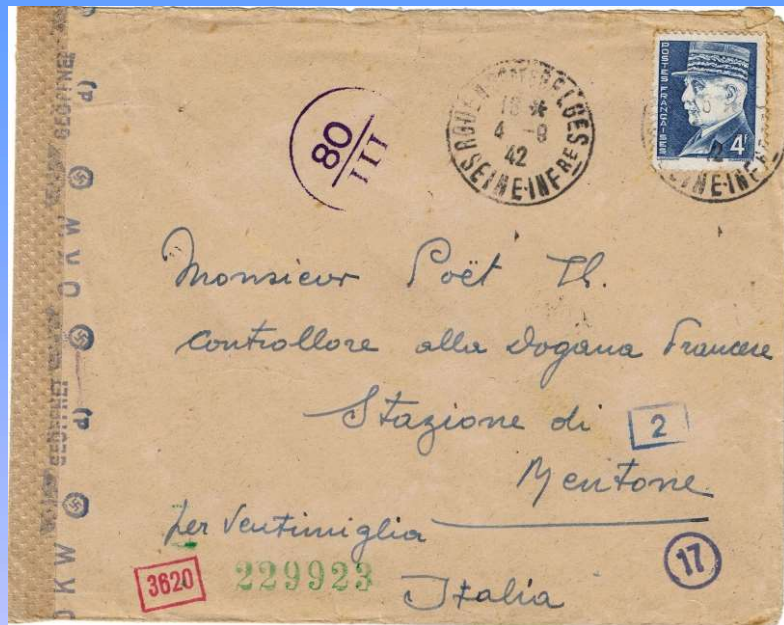 GEÖFFNET
d)
OKW
GEÖFFNET
d)
OKW
80
III
ROUEN
BELGES
18 *
4 -8
42
SEINE-INFRES
POSTES FRANÇAISES
4F
42
SEINE-INFRES
Monsieur Poët Th.
controllore alla Dogana Francese
Stazione di
2
Mentone
per Ventimiglia
17
3620
229923
Italia